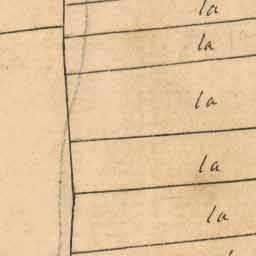 la
la
la
la
la